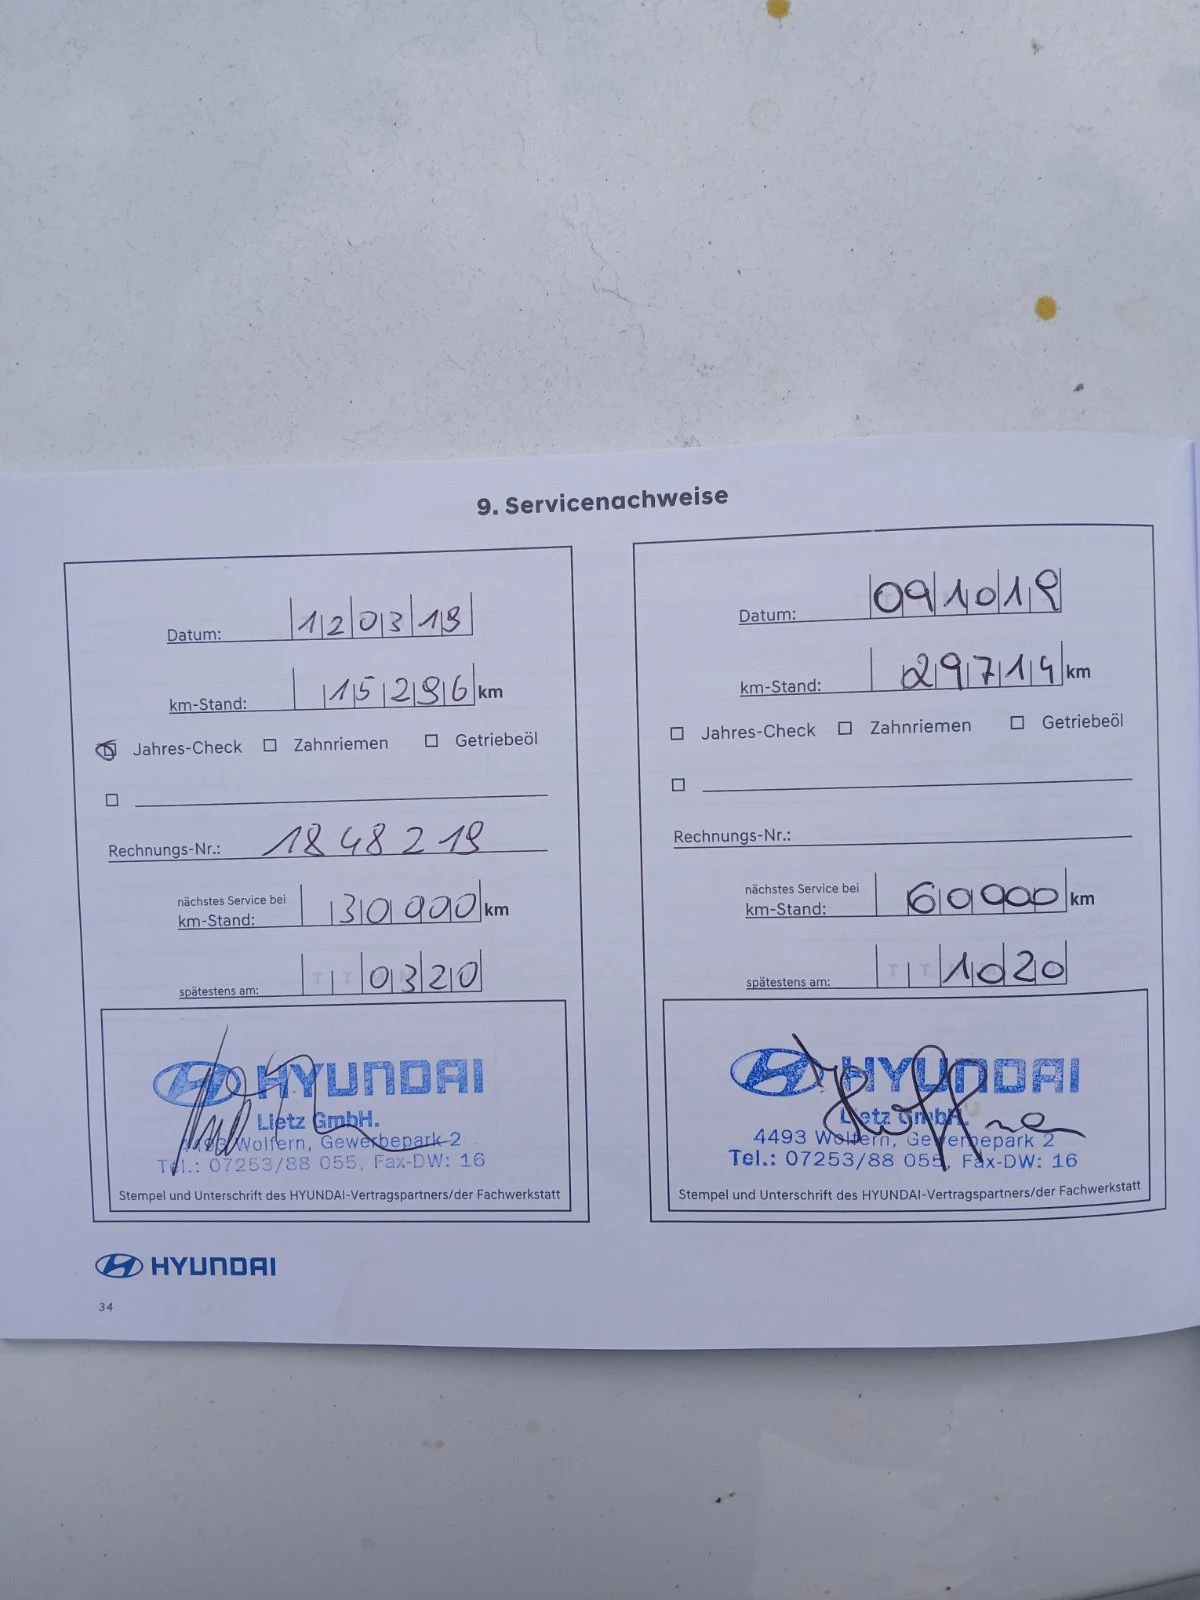 9. Servicenachweise
Datum: 12 03 19
km-Stand: 15296 km
Jahres-Check Zahnriemen Getriebeöl
Rechnungs-Nr.: 1848219
nächstes Service bei
km-Stand: 30000 km
spätestens am: 0320
HYUNDAI
Lietz GmbH.
4493 Wolfern, Gewerbepark 2
Tel.: 07253/88 055, Fax-DW: 16
Stempel und Unterschrift des HYUNDAI-Vertragspartners/der Fachwerkstatt
Datum: 09 10 19
km-Stand: 29714 km
Jahres-Check Zahnriemen Getriebeöl
Rechnungs-Nr.:
nächstes Service bei
km-Stand: 60000 km
spätestens am: 1020
HYUNDAI
Lietz GmbH.
4493 Wolfern, Gewerbepark 2
Tel.: 07253/88 055, Fax-DW: 16
Stempel und Unterschrift des HYUNDAI-Vertragspartners/der Fachwerkstatt
HYUNDAI
34